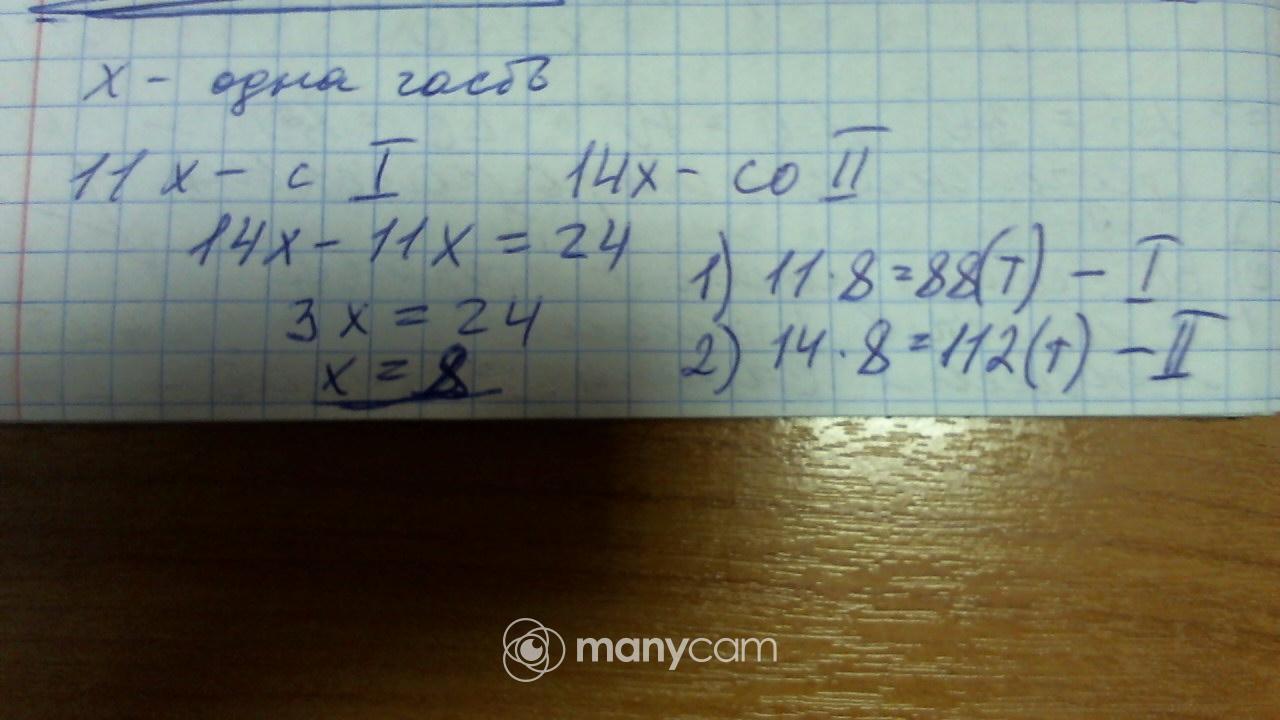 x - одна часть
11x - с I 14x - со II
14x - 11x = 24
3x = 24
x = 8
1) 11·8=88(т) - I
2) 14·8=112(т) - II
manycam